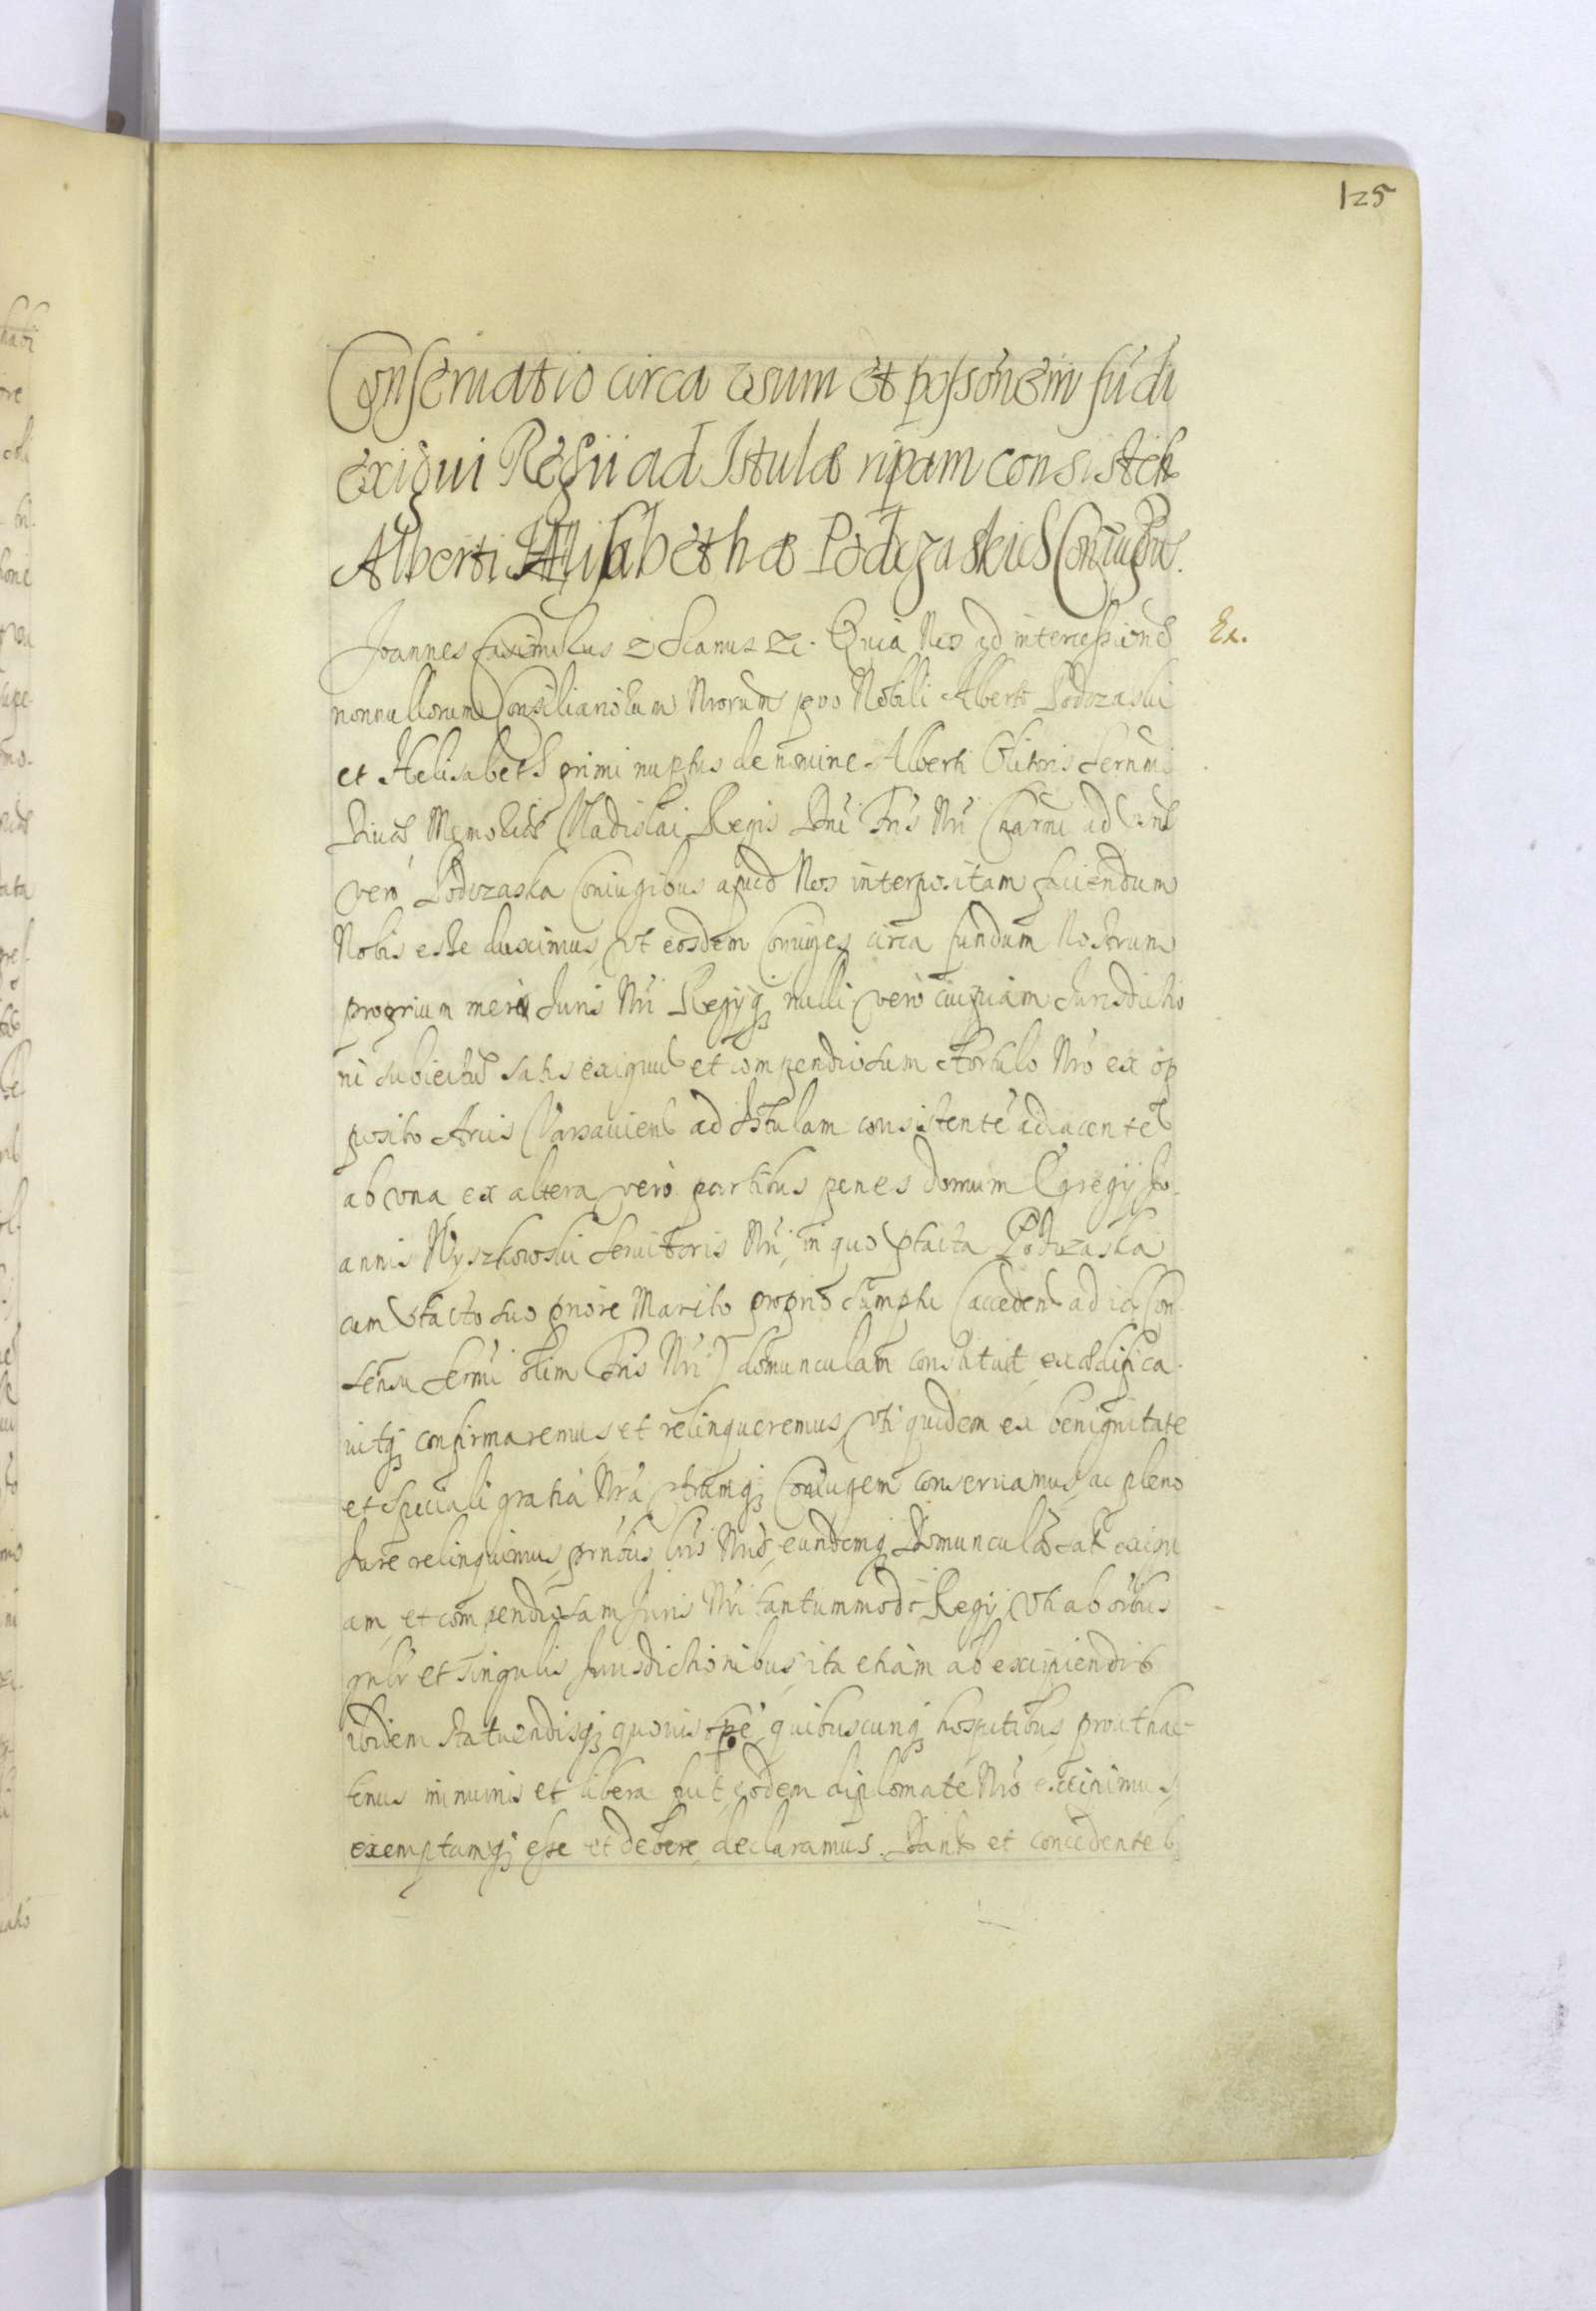 125
Conseruatio circa usum et possonem fūdi
exigui Regii ad Istulæ ripam consisten
Alberti Helisabethæ Podczaskies Coniugū.
Joannes Casimirus Quia Nos ad intercessionē
Ex.
nonnullorum Consiliariorum Nrorum pro Nobili Alberto Podczaski
et Helisabeth primi nuptus de nomine Alberti Olitoris Sernmi
Diuæ Memoriæ Vladislai Regis Dni Fris Nri Czarni ad
vero Podczaska Coniugibus apud Nos interpositam faciendum
Nobis esse duximus, vt eosdem Coniuges circa fundum Nostrum
proprium meri Juris Nri Regijq nulli vero cuipiam Jurisdictio
ni subiectū satis exiguū et compendiosum Hortulo Nro ex op
posito Arcis Varsauien ad Istulam consistente adiacentē
ab vna ex altera vero partibus penes domum Egregij Jo
annis Wyszkowski Seruitoris Nri, in quo pfacta Podczaska
cum pfacto suo priore Marito proprio sumptu (acceden ad id Con
sensu Sernmi olim Fris Nri) domunculam constituit exædifica
uitq confirmaremus et relinqueremus, vti quidem ex benignitate
et speciali gratia Nra vtrumq Coniugem conseruamus, ac pleno
Jure relinquimus, pntibus lris Nris, eandemq Domunculā sat exigu
am, et compendiosam Juris Nri tantummodo Regij vti ab oibus
gnlr et singulis Jurisdictionibus, ita etiam ab excipiendis
ibidem statuendisq quouis tpe quibuscunq hospitibus, prout hac
tenus immunis et libera fuit, eodem diplomate Nro eximimus,
exemptamq esse et debere declaramus. Dantes et concedentes